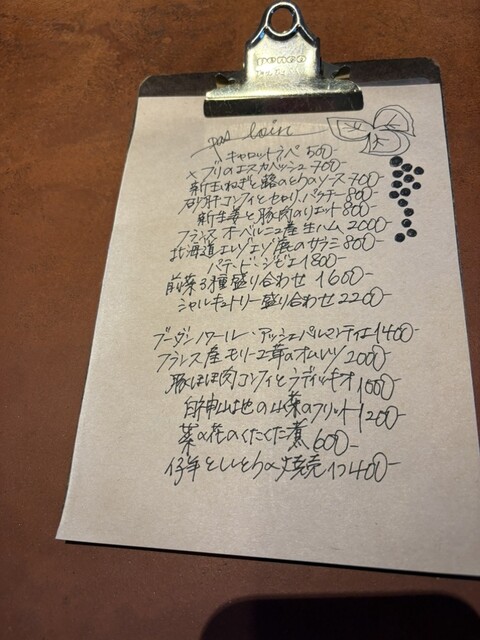 pas loin
キャロットラペ 500-
×ブリのエスカベッシュ 700-
新玉ねぎと蕗のとうのソース 700-
砂肝コンフィとセロリ、パクチー 800
新生姜と豚肉のリエット 800-
フランス オーベルニュ産 生ハム 2000-
北海道エレゾエゾ鹿のサラミ 800-
パテ・ド・ジビエ 1800-
前菜3種盛り合わせ 1600-
シャルキュトリー盛り合わせ 2200-
ブーダンノワール・アッシェパルマンティエ 1400-
フランス産モリーユ茸のオムレツ 2000-
豚ほほ肉コンフィとラディッキオ 1000-
白神山地の山菜のフリット 1200-
菜の花のくたくた煮 600-
仔羊としいたけの焼売 1コ400-